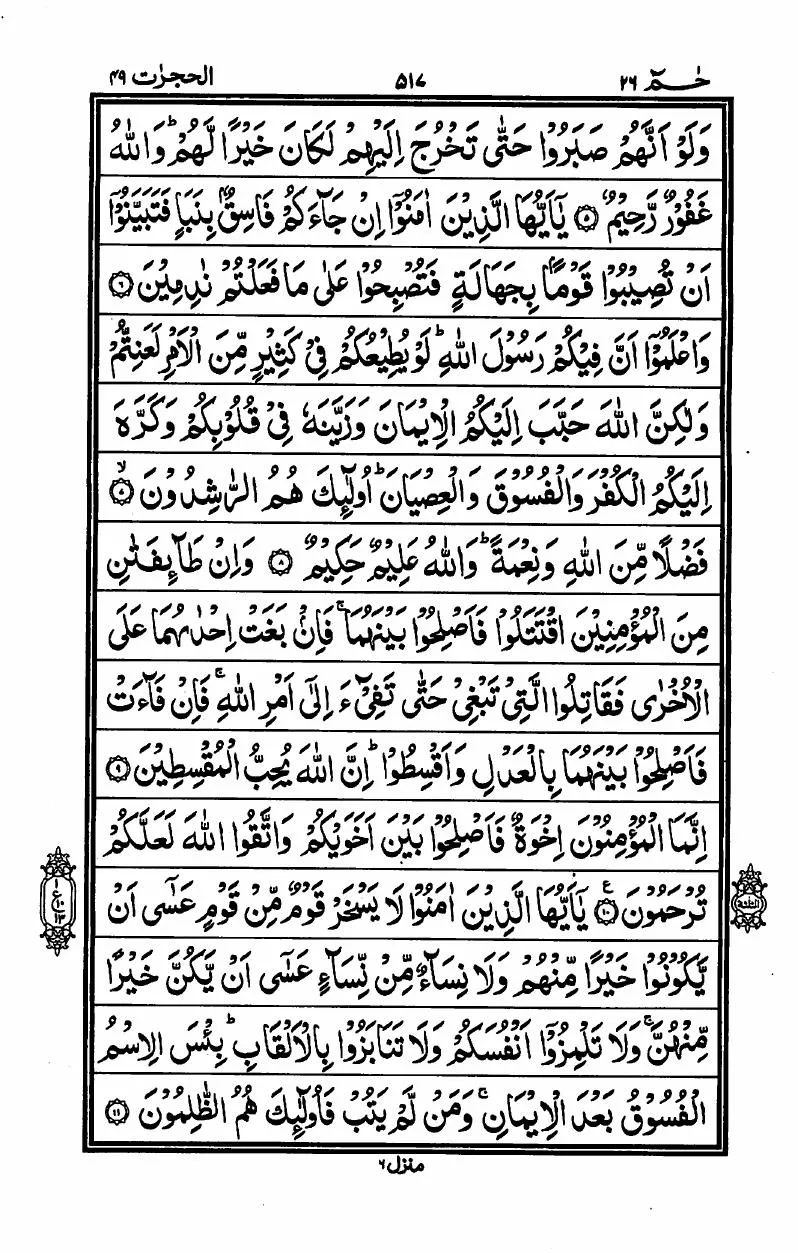 حٰـمٓ ٢٦ ٥١٧ الحجرٰت ٤٩
وَلَوْ اَنَّهُمْ صَبَرُوْا حَتّٰى تَخْرُجَ اِلَيْهِمْ لَكَانَ خَيْرًا لَّهُمْ ؕ وَاللّٰهُ
غَفُوْرٌ رَّحِيْمٌ ۝٥ يٰۤاَيُّهَا الَّذِيْنَ اٰمَنُوْۤا اِنْ جَآءَكُمْ فَاسِقٌۢ بِنَبَاٍ فَتَبَيَّنُوْۤا
اَنْ تُصِيْبُوْا قَوْمًۢا بِجَهَالَةٍ فَتُصْبِحُوْا عَلٰى مَا فَعَلْتُمْ نٰدِمِيْنَ ۝٦
وَاعْلَمُوْۤا اَنَّ فِيْكُمْ رَسُوْلَ اللّٰهِ ؕ لَوْ يُطِيْعُكُمْ فِيْ كَثِيْرٍ مِّنَ الْاَمْرِ لَعَنِتُّمْ
وَلٰكِنَّ اللّٰهَ حَبَّبَ اِلَيْكُمُ الْاِيْمَانَ وَزَيَّنَهٗ فِيْ قُلُوْبِكُمْ وَكَرَّهَ
اِلَيْكُمُ الْكُفْرَ وَالْفُسُوْقَ وَالْعِصْيَانَ ؕ اُولٰٓئِكَ هُمُ الرّٰشِدُوْنَ ۝٧ۙ
فَضْلًا مِّنَ اللّٰهِ وَنِعْمَةً ؕ وَاللّٰهُ عَلِيْمٌ حَكِيْمٌ ۝٨ وَاِنْ طَآئِفَتٰنِ
مِنَ الْمُؤْمِنِيْنَ اقْتَتَلُوْا فَاَصْلِحُوْا بَيْنَهُمَا ۚ فَاِنْۢ بَغَتْ اِحْدٰىهُمَا عَلَى
الْاُخْرٰى فَقَاتِلُوا الَّتِيْ تَبْغِيْ حَتّٰى تَفِيْٓءَ اِلٰۤى اَمْرِ اللّٰهِ ۚ فَاِنْ فَآءَتْ
فَاَصْلِحُوْا بَيْنَهُمَا بِالْعَدْلِ وَاَقْسِطُوْا ؕ اِنَّ اللّٰهَ يُحِبُّ الْمُقْسِطِيْنَ ۝٩
اِنَّمَا الْمُؤْمِنُوْنَ اِخْوَةٌ فَاَصْلِحُوْا بَيْنَ اَخَوَيْكُمْ وَاتَّقُوا اللّٰهَ لَعَلَّكُمْ
تُرْحَمُوْنَ ۝١٠ ع يٰۤاَيُّهَا الَّذِيْنَ اٰمَنُوْا لَا يَسْخَرْ قَوْمٌ مِّنْ قَوْمٍ عَسٰۤى اَنْ
يَّكُوْنُوْا خَيْرًا مِّنْهُمْ وَلَا نِسَآءٌ مِّنْ نِّسَآءٍ عَسٰۤى اَنْ يَّكُنَّ خَيْرًا
مِّنْهُنَّ ۚ وَلَا تَلْمِزُوْۤا اَنْفُسَكُمْ وَلَا تَنَابَزُوْا بِالْاَلْقَابِ ؕ بِئْسَ الِاسْمُ
الْفُسُوْقُ بَعْدَ الْاِيْمَانِ ۚ وَمَنْ لَّمْ يَتُبْ فَاُولٰٓئِكَ هُمُ الظّٰلِمُوْنَ ۝١١
منزل ٦